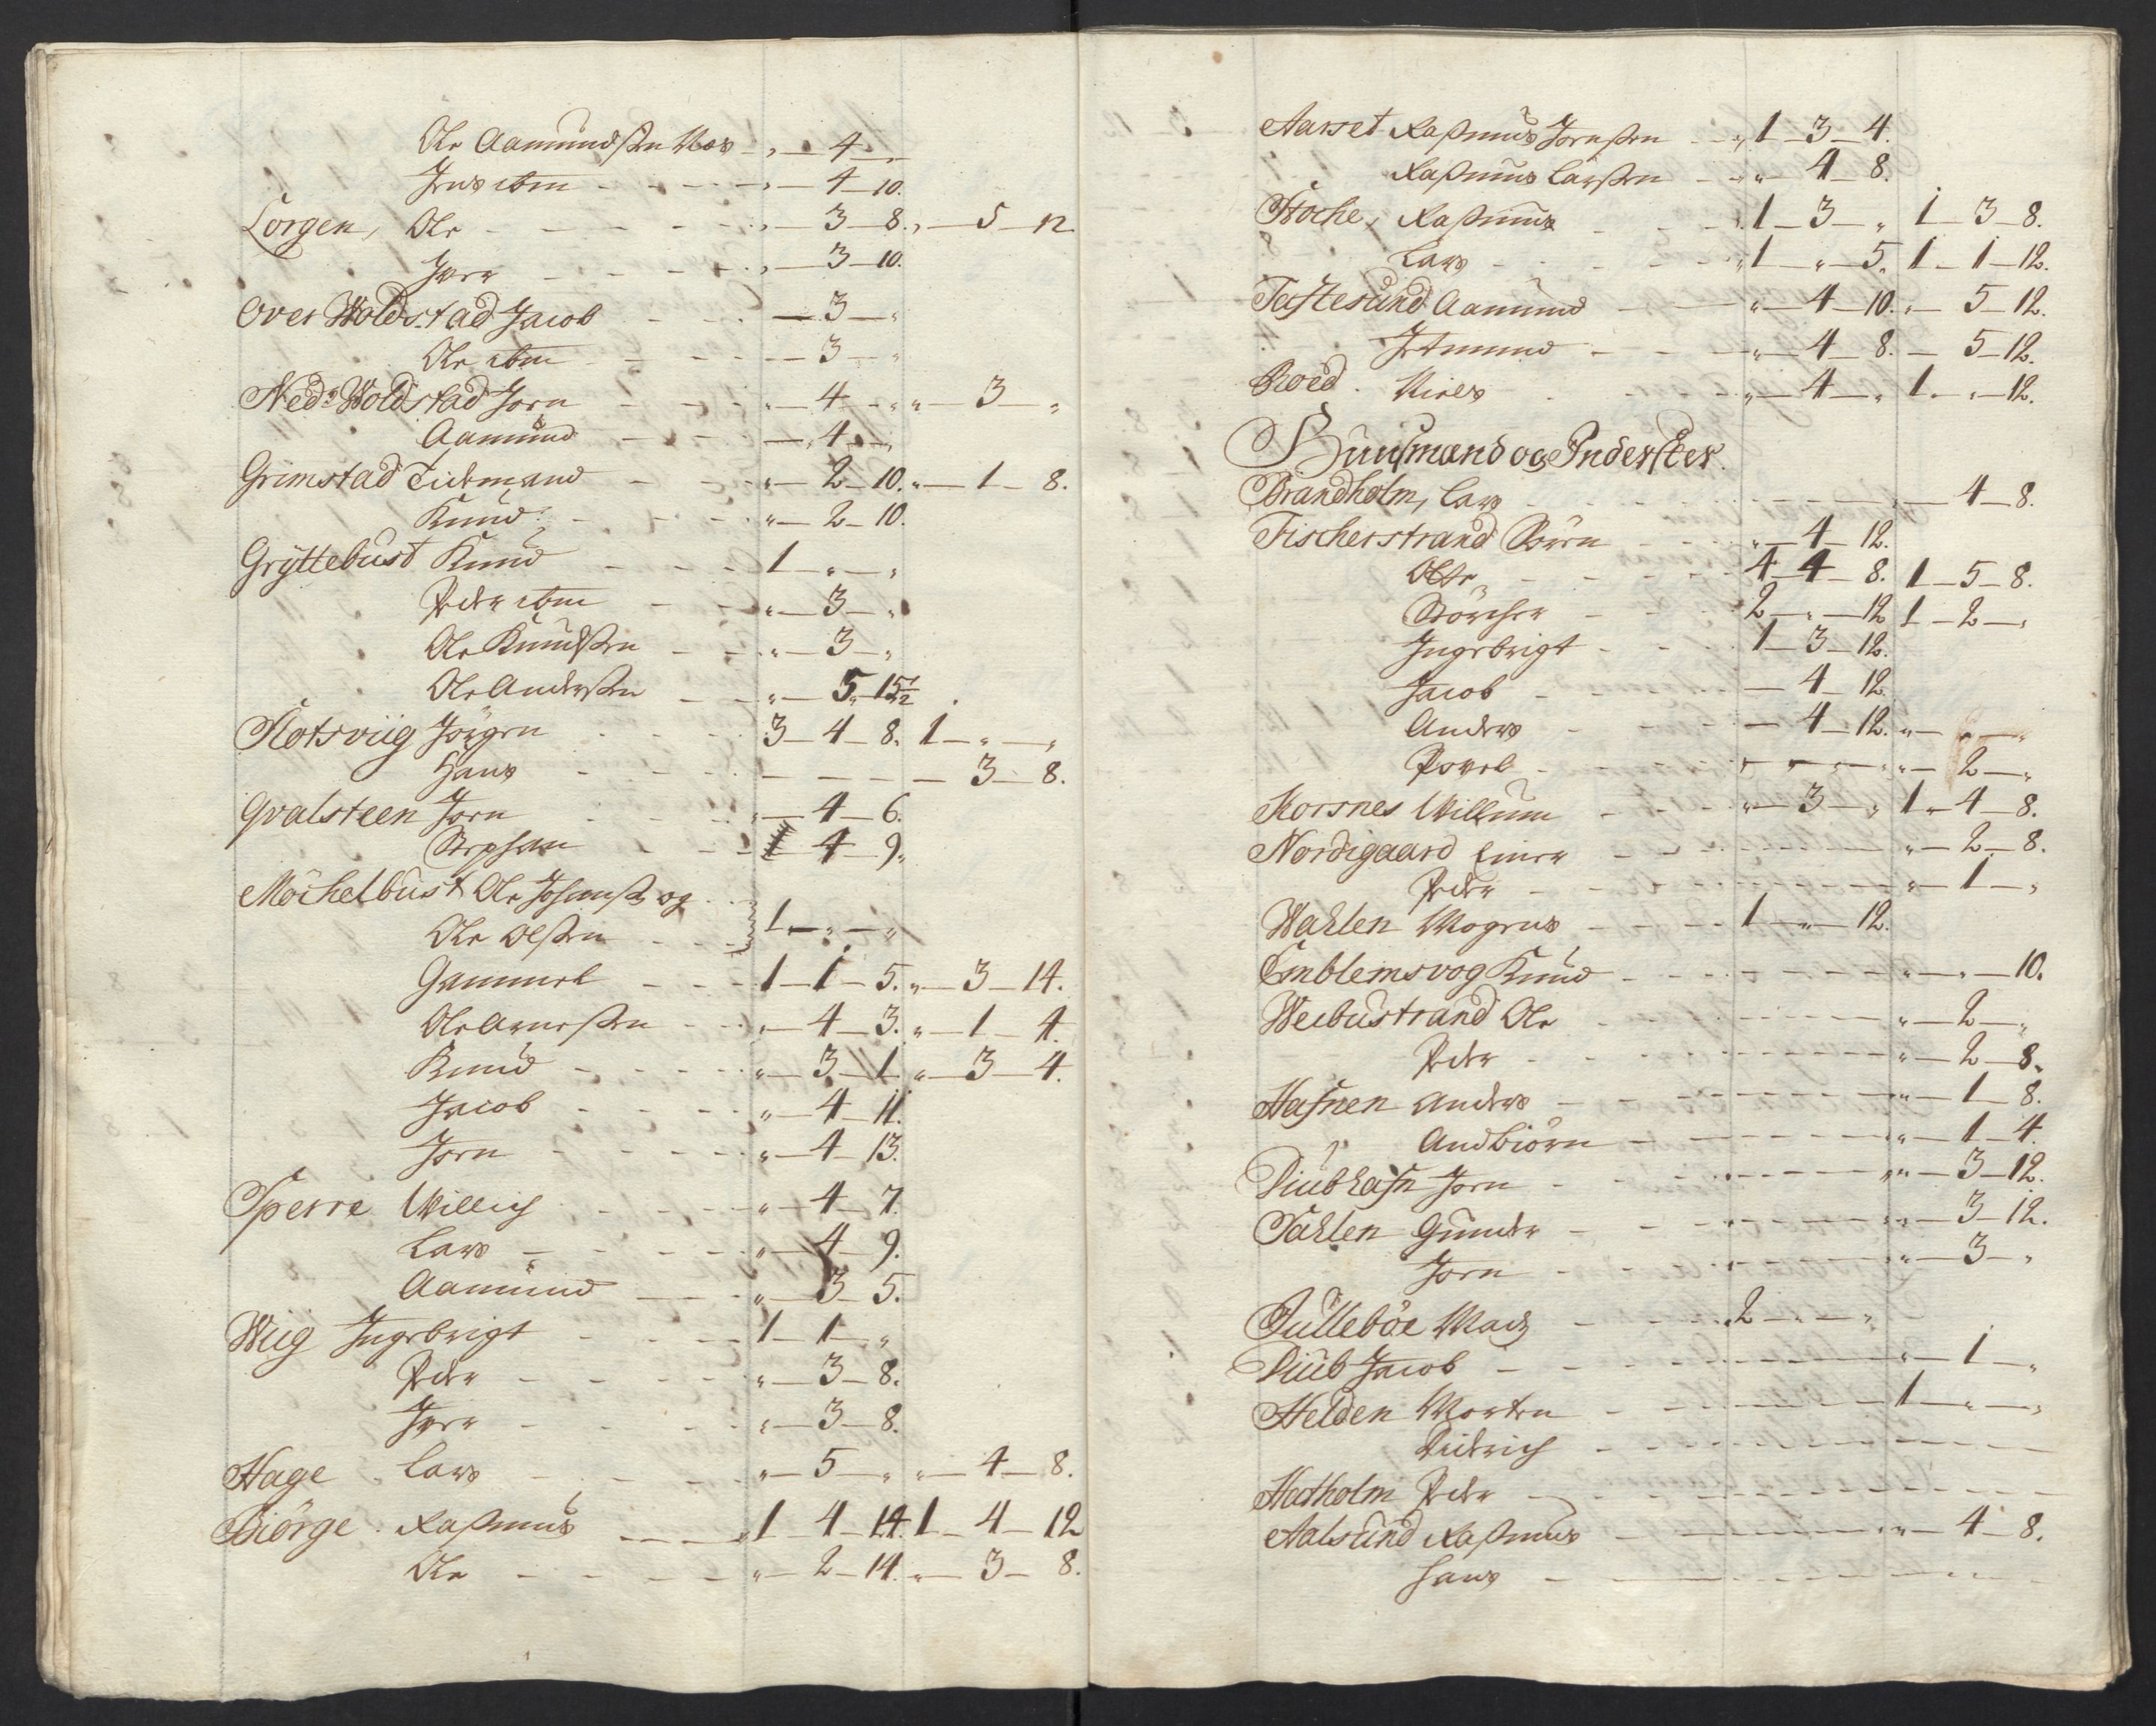 Ole Aamundsen Næs „ — 4 — „
Jens ibm „ — 4 — 10.
Lorgen, Ole „ — 3 — 8. „ — 5 — 12
Iver „ — 3 — 10.
Over Woldstad Jacob — 3 — „
Ole ibm — 3 — „
Nedr Woldstad Jorn „ — 4 — „ „ — 3 — „
Aamund — 4 — „
Grimstad Tidemand „ — 2 — 10. „ — 1 — 8.
Knud „ — 2 — 10.
Gryttebust Knud 1 — „ — „
Peder ibm „ — 3 — „
Ole Knudsen „ — 3 — „
Ole Andersen „ — 5 „ 15½
Flotsviig Jörgen 3 — 4 — 8. 1 — „ — „
Hans — — — — 3 — 8.
Qvalsteen Jorn „ — 4 — 6.
Stephan 4 — 9.
Möchelbust Ole Johans. og
Ole Olsen 1 — „ — „
Gammel 1 — 1 — 5. „ — 3 — 14.
Ole Arnesen „ — 4 — 3. „ — 1 — 4.
Knud „ — 3 — 1 „ — 3 — 4.
Jacob „ — 4 — 11.
Jorn „ — 4 — 13.
Sperre Willich „ — 4 — 7.
Lars „ — 4 — 9.
Aamund „ — 3 — 5.
Wiig Ingebrigt 1 — 1 — „
Peder „ — 3 — 8.
Iver „ — 3 — 8.
Hage Lars „ — 5 — „ „ — 4 — 8.
Biörge. Rasmus 1 — 4 — 14. 1 — 4 — 12
Ole „ — 2 — 14. „ — 3 — 8.
Aarset Rasmus Jornsen 1 — 3 — 4.
Rasmus Larsen „ — 4 — 8.
Stoche, Rasmus 1 — 3 — „ 1 — 3 — 8.
Lars 1 — „ — 5. 1 — 1 — 12.
Tastesund Aamund „ — 4 — 10. „ — 5 — 12.
Jetmund „ — 4 — 8. — 5 — 12.
Roed. Niels „ — 4 — „ 1 — „ — 12.
Huusmænd og Inderster.
Brandholm, Lars — 4 — 8.
Fischerstrand Sören „ — 4 — 12.
4 — 4 — 8. 1 — 5 — 8.
Störcher 2 — „ — 12 1 — 2 — „
Ingebrigt 1 — 3 — 12.
Jacob — 4 — 12.
Anders — 4 — 12. „ — „ — „
Povel „ — 2 — „
Korsnes Willum „ — 3 — „ 1 — 4 — 8.
Nordigaard Einer „ — 2 — 8.
Peder „ — 1 — „
Wahlen Mogens 1 — „ — 12.
Emblemsvog Knud „ — „ — 10.
Weibustrand Ole „ — 2 — „
Peder „ — 2 — 8.
Hafnen Anders „ — 1 — 8.
Andbiörn „ — 1 — 4.
Diubhafn Jorn „ — 3 — 12.
Sahlen Gunder „ — 3 — 12.
Jorn „ — 3 — „
Julleböe Mads 2 — „ — „
Diub Jacob „ — 1 — „
Helden Morten 1 — „ — „
Didrich
Hatholm Peder
Aalsund Rasmus „ — 4 — 8.
Hans